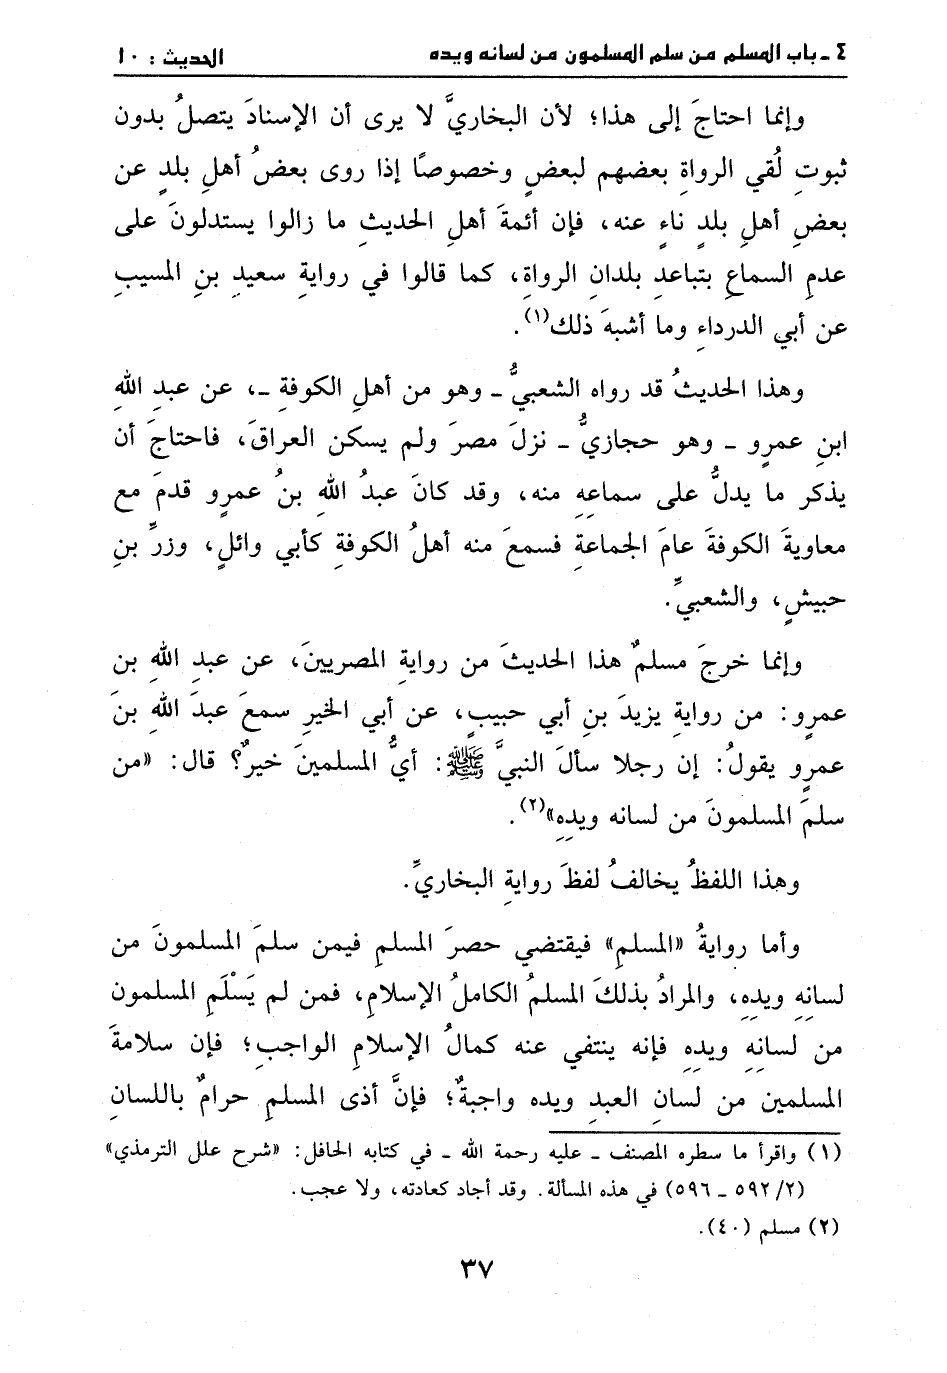 ٤ ـ باب المسلم من سلم المسلمون من لسانه ويده الحديث : ١٠
وإنما احتاجَ إلى هذا؛ لأن البخاريَّ لا يرى أن الإسنادَ يتصلُ بدون
ثبوتِ لُقي الرواةِ بعضهم لبعضٍ وخصوصًا إذا روى بعضُ أهلِ بلدٍ عن
بعضِ أهلِ بلدٍ ناءٍ عنه، فإن أئمةَ أهلِ الحديثِ ما زالوا يستدلونَ على
عدمِ السماعِ بتباعدِ بلدانِ الرواةِ، كما قالوا في روايةِ سعيدِ بنِ المسيبِ
عن أبي الدرداءِ وما أشبهَ ذلك(١).
وهذا الحديثُ قد رواه الشعبيُّ ـ وهو من أهلِ الكوفةِ ـ، عن عبدِ اللهِ
ابنِ عمرٍو ـ وهو حجازيٌّ ـ نزلَ مصرَ ولم يسكن العراقَ، فاحتاجَ أن
يذكر ما يدلُّ على سماعِهِ منه، وقد كانَ عبدُ اللهِ بنُ عمرٍو قدمَ مع
معاويةَ الكوفةَ عامَ الجماعةِ فسمعَ منه أهلُ الكوفةِ كأبي وائلٍ، وزرِّ بنِ
حبيشٍ، والشعبيِّ.
وإنما خرجَ مسلمٌ هذا الحديثَ من روايةِ المصريينَ، عن عبدِ اللهِ بنِ
عمرٍو: من روايةِ يزيدَ بنِ أبي حبيبٍ، عن أبي الخيرِ سمعَ عبدَ اللهِ بنَ
عمرٍو يقولُ: إن رجلا سألَ النبيَّ ﷺ: أيُّ المسلمينَ خيرٌ؟ قال: «من
سلمَ المسلمونَ من لسانه ويدِهِ»(٢).
وهذا اللفظُ يخالفُ لفظَ روايةِ البخاريِّ.
وأما روايةُ «المسلمِ» فيقتضي حصرَ المسلمِ فيمن سلمَ المسلمونَ من
لسانِهِ ويدِهِ، والمرادُ بذلكَ المسلمُ الكاملُ الإسلامِ، فمن لم يَسْلَمِ المسلمون
من لسانِهِ ويدِهِ فإنه ينتفي عنه كمالُ الإسلامِ الواجبِ؛ فإن سلامةَ
المسلمين من لسانِ العبدِ ويدِه واجبةٌ؛ فإنَّ أذى المسلمِ حرامٌ باللسانِ
(١) واقرأ ما سطره المصنف ـ عليه رحمة الله ـ في كتابه الحافل: «شرح علل الترمذي»
(٥٩٢/٢ ـ ٥٩٦) في هذه المسألة. وقد أجاد كعادته، ولا عجب.
(٢) مسلم (٤٠).
٣٧